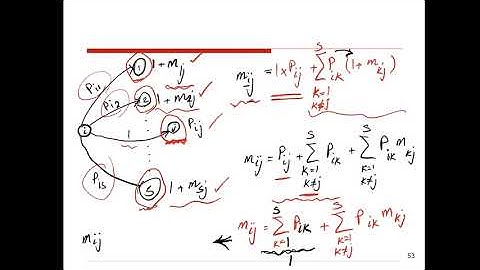 P_{i1} ① 1 + m_{ij} ✓
P_{i2} ② 1 + m_{2j} ✓
i 1 j P_{ij} ✓
P_{is} S 1 + m_{sj} ✓
m_{ij}
m_{ij} = 1 x P_{ij} + \sum_{k=1, k≠j}^{S} P_{ik} (1 + m_{kj})
m_{ij} = P_{ij} + \sum_{k=1, k≠j}^{S} P_{ik} + \sum_{k=1, k≠j}^{S} P_{ik} m_{kj}
m_{ij} = \sum_{k=1}^{S} P_{ik} + \sum_{k=1, k≠j}^{S} P_{ik} m_{kj}
1
53